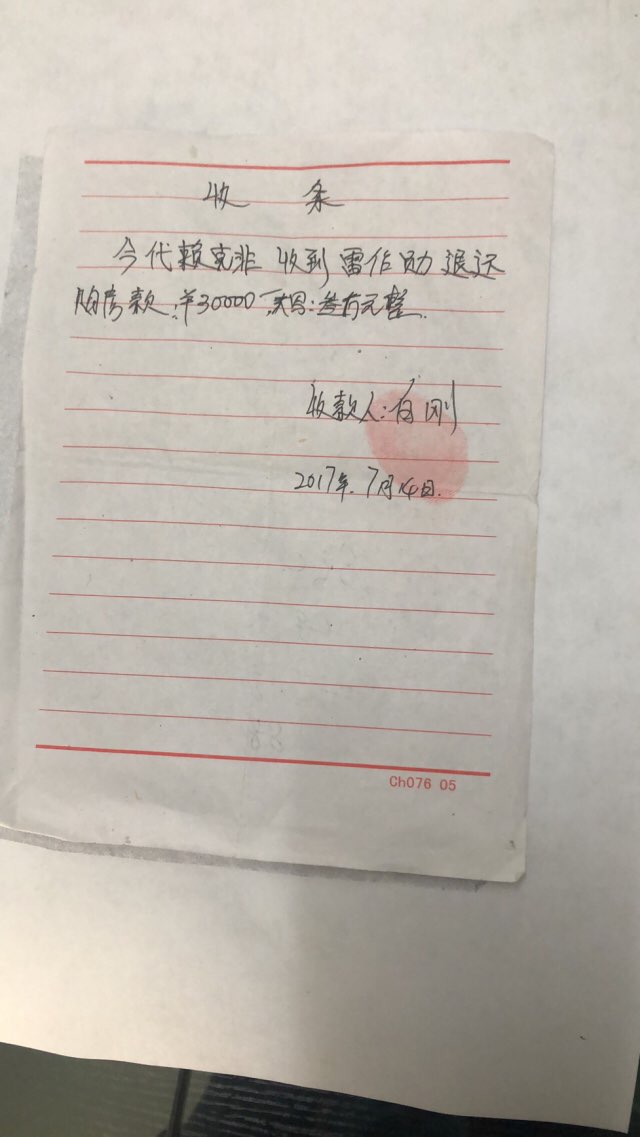 收 条
今代赖克非 收到 雷作勋 退还
购房款:¥30000 大写:叁万元整.
收款人:白刚
2017年.7月14日.
Ch076 05